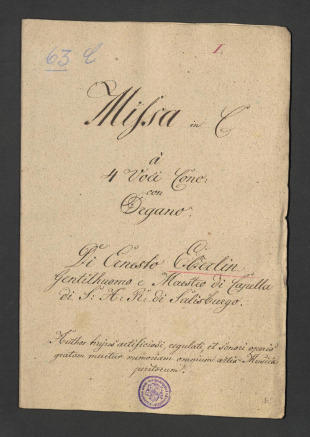 63 C
1.
Missa in C
à
4 Voci Conc:
con
Organo.
C.
Di Ernesto Eberlin
Gentilhuomo e Maestro di Capella
di S: A: R: di Salisburgo.
Author hujus artificiosi, regulati, et sonori operis
gratam meretur memoriam omnium artis Musicæ
peritorum.